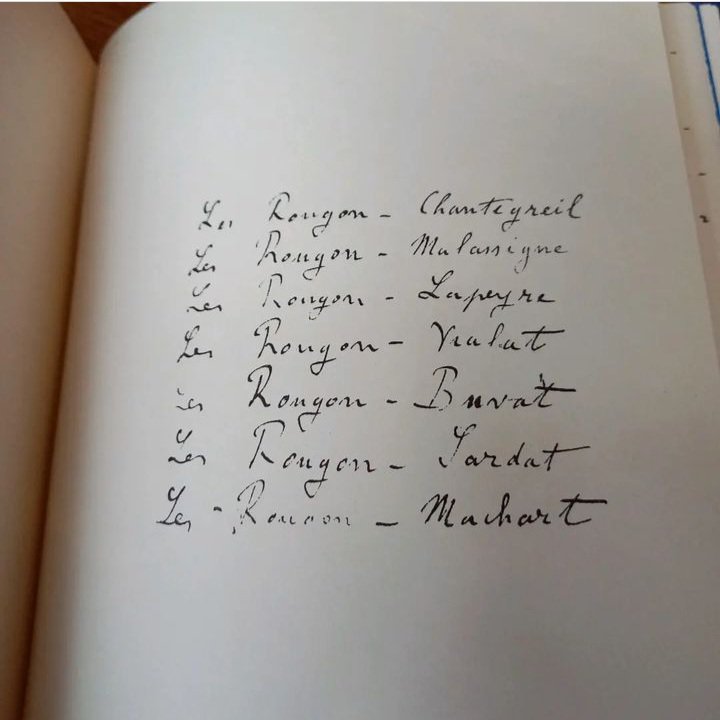 Les Rougon - Chantegreil
Les Rougon - Malassigne
Les Rougon - Lapeyre
Les Rougon - Vialat
Les Rougon - Buvat
Les Rougon - Sardat
Les Rougon - Machart